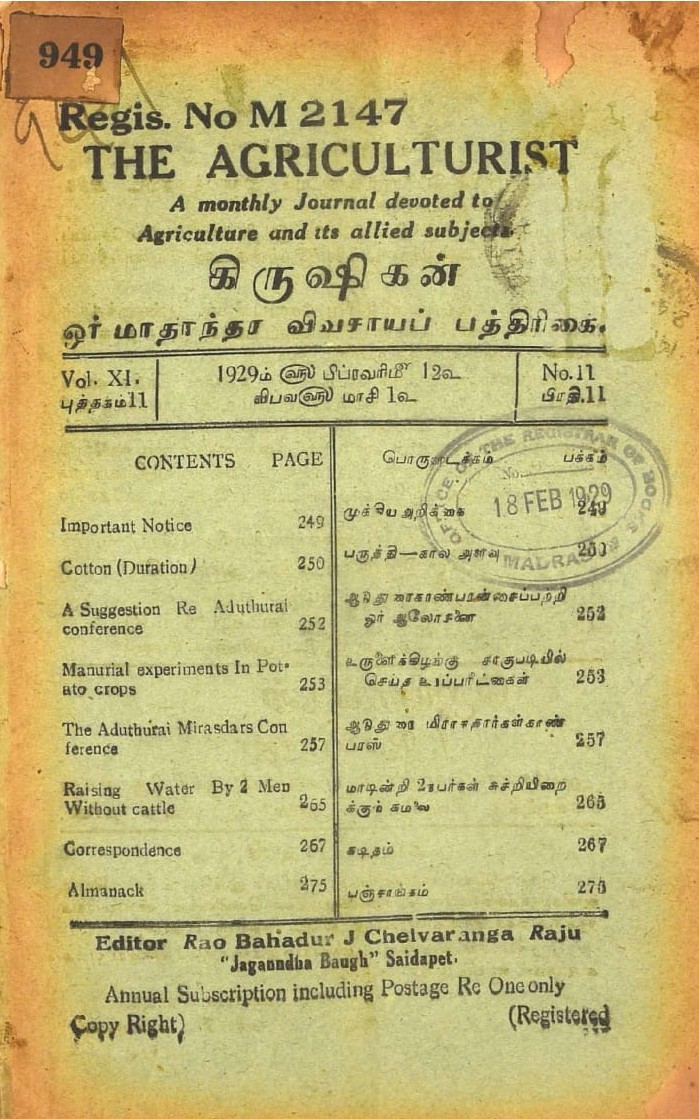 949
Regis. No M 2147
THE AGRICULTURIST
A monthly Journal devoted to
Agriculture and its allied subjects
கிருஷிகன்
ஓர் மாதாந்தர விவசாயப் பத்திரிகை.
Vol. XI.
புத்தகம் 11
1929ம் ௵ பிப்ரவரி௴ 12௳
விபவ௵ மாசி 1௳
No. 11
பிரதி. 11
CONTENTS PAGE
Important Notice 249
Cotton (Duration) 250
A Suggestion Re Aduthurai
conference 252
Manurial experiments In Pot-
ato crops 253
The Aduthurai Mirasdars Con
ference 257
Raising Water By 2 Men
Without cattle 265
Correspondence 267
Almanack 275
பொருளடக்கம் பக்கம்
முக்கிய அறிக்கை 249
பருத்தி—கால அளவு 250
ஆடுதுறைகான்பரன்சைப்பற்றி
ஓர் ஆலோசனை 252
உருளைக்கிழங்கு சாகுபடியில்
செய்த உரப்பரீட்கைள் 253
ஆடுதுறை மிராசுதார்கள்கான்
பரஸ் 257
மாடின்றி 2நபர்கள் சுச்றியிறை
க்கும் கமலை 265
கடிதம் 267
பஞ்சாங்கம் 275
OFFICE OF THE REGISTRAR OF BOOKS
No.
18 FEB 1929
MADRAS
Editor Rao Bahadur J Chelvaranga Raju
"Jaganndha Baugh" Saidapet.
Annual Subscription including Postage Re One only
Copy Right) (Registered